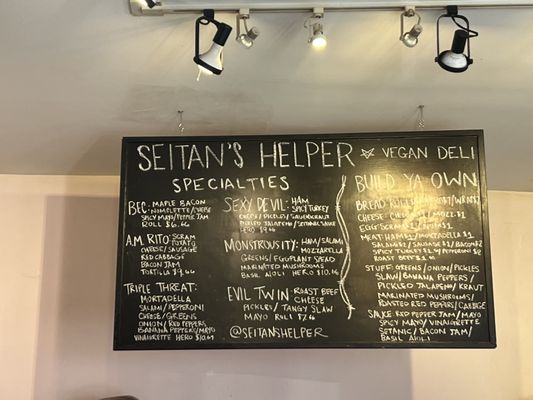 SEITAN'S HELPER VEGAN DELI
SPECIALTIES
BEC: MAPLE BACON
SPICY MAYO/PEPPER JAM
ROLL $6.66
A.M. RITO: SCRAM
POTATO
CHEESE/SAUSAGE
RED CABBAGE
BACON JAM
TORTILLA $9.66
TRIPLE THREAT:
MORTADELLA
SALAMI/PEPPERONI
CHEESE/GREENS
ONION/RED PEPPERS
BANANA PEPPERS/MAYO
VINAIGRETTE HERO
SEXY DEVIL: HAM
SPICY TURKEY
CHEESE/PICKLES/SAUERKRAUT
PICKLED JALAPEÑO/SEITANIC SAUCE
HERO
MONSTROUSITY: HAM/SALAMI
MOZZARELLA
GREENS/EGGPLANT SPEAD
MARINATED MUSHROOMS
BASIL AIOLI HERO $10.66
EVIL TWIN: ROAST BEEF
CHEESE
PICKLES/TANGY SLAW
MAYO ROLL
@SEITANSHELPER
BUILD YA OWN
BREAD
CHEESE:
EGG: SCRAM
MEAT: HAM MORTADELLA
SALAMI SAUSAGE BACON
SPICY TURKEY PEPPERONI
ROAST BEEF
STUFF: GREENS/ONION/PICKLES
SLAW/BANANA PEPPERS/
PICKLED JALAPEÑO/KRAUT
MARINATED MUSHROOMS/
ROASTED RED PEPPERS/CABBAGE
RED PEPPER JAM/MAYO
SPICY MAYO/VINAIGRETTE
SEITANIC/BACON JAM/
BASIL AIOLI